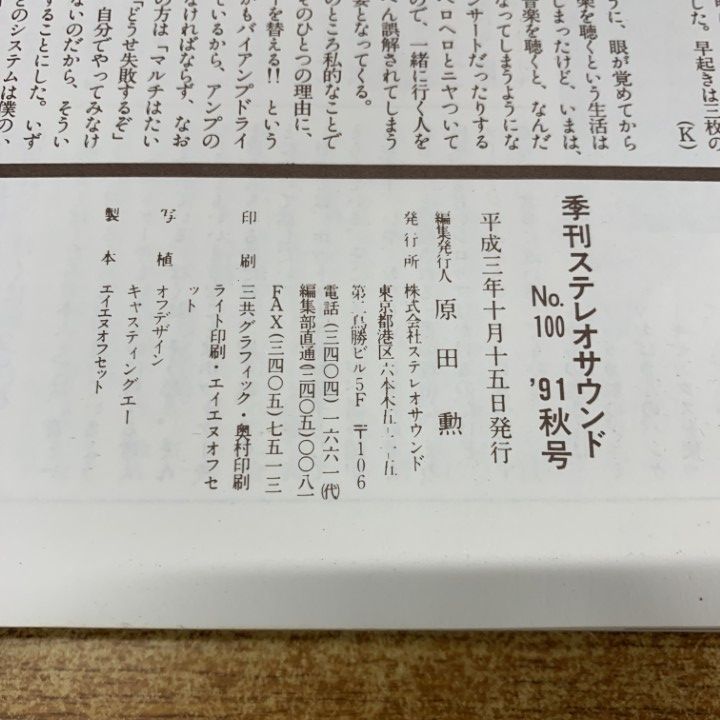 した。早起きは三枚の
(K)
うに、眼が覚めてから
楽を聴くという生活は
しまったけど、いまは、
音楽を聴くと、なんだ
なってしまうようにな
ンサートだったりする
ヘロヘロとニヤついて
ので、一緒に行く人を
へん誤解されてしまう
要となってくる。
のところ私的なことで
そのひとつの理由に、
ーを替える!! という
かもバイアンプドライ
ているから、アンプの
なければならず、なお
の方は「マルチはたい
「どうせ失敗するぞ」
、自分でやってみなけ
ないのだから、そうい
することにした。いず
このシステムは僕のい
季刊ステレオサウンド
No.100 '91秋号
平成三年十月十五日発行
編集発行人 原田 勲
発行所 株式会社ステレオサウンド
東京都港区六本木五
ビル5F 〒106
電話(三四〇四)一六六一(代)
編集部直通(三四〇五)〇〇八一
FAX(三四〇五)七五一三
印刷 三共グラフィック・奥村印刷
ライト印刷・エイエヌオフセ
ット
写植 オフデザイン
キャスティングエー
製本 エイエヌオフセット